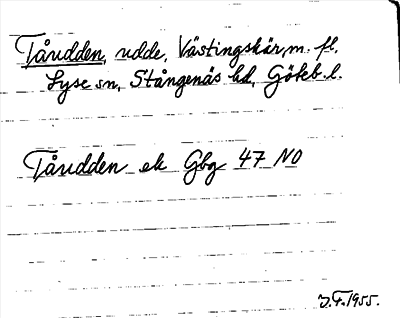 Tåudden, udde, Västingskär, m. fl.
Lyse sn, Stångenäs hd, Göteb. l.
Tåudden ek Gbg 47 NO
J.F. 1955.